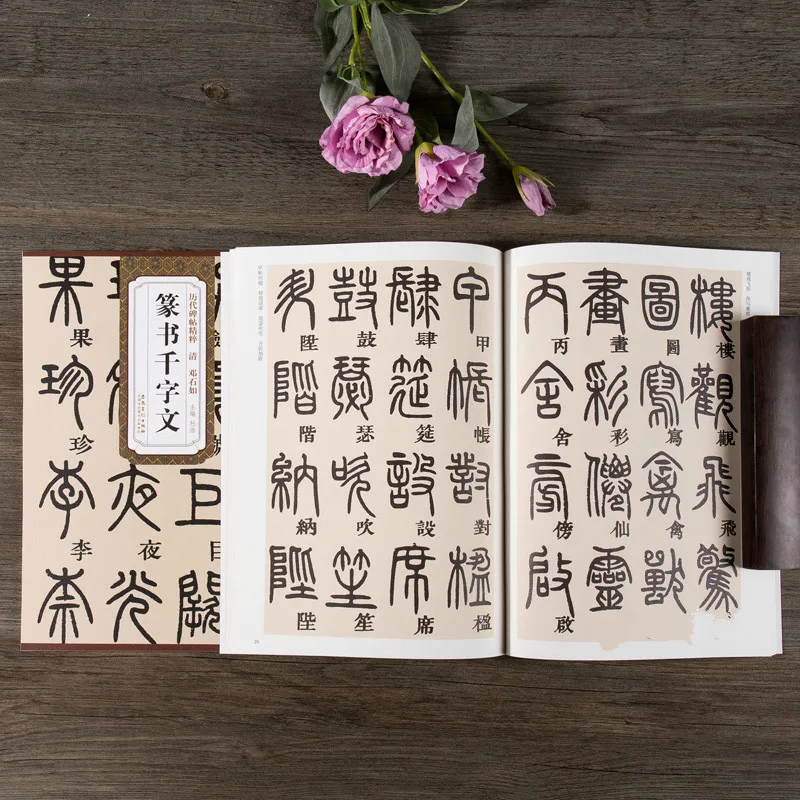 历代碑帖精粹 清 邓石如
篆书千字文
主编 杜浩
巨闕
夜光
果珍李柰
樓觀飛驚
圖寫禽獸
畫彩仙靈
丙舍傍啟
甲帳對楹
肆筵設席
鼓瑟吹笙
陞階納陛